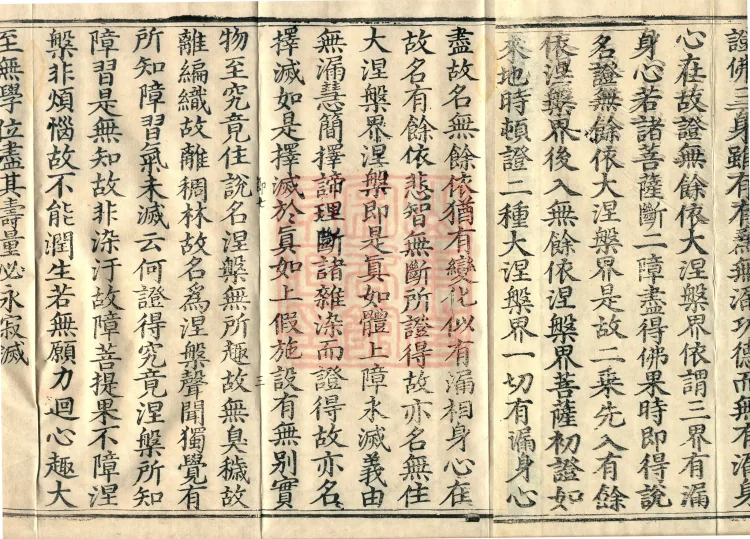 證佛三身雖有有為無漏功德而無有漏身
心在故證無餘依大涅槃界依謂三界有漏
身心若諸菩薩斷二障盡得佛果時即得說
名證無餘依大涅槃界是故二乘先入有餘
依涅槃界後入無餘依涅槃界菩薩初證如
來地時頓證二種大涅槃界一切有漏身心
盡故名無餘依猶有變化似有漏相身心在
故名有餘依悲智無斷所證得故亦名無住
大涅槃界涅槃即是真如體上障永滅義由
無漏慧簡擇諦理斷諸雜染而證得故亦名
擇滅如是擇滅於真如上假施設有無別實
物至究竟住說名涅槃無所趣故無臭穢故
離編織故離稠林故名為涅槃聲聞獨覺有
所知障習氣未滅云何證得究竟涅槃所知
障習是無知故非染汙故障菩提果不障涅
槃非煩惱故不能潤生若無願力迴心趣大
至無學位盡其壽量必永寂滅